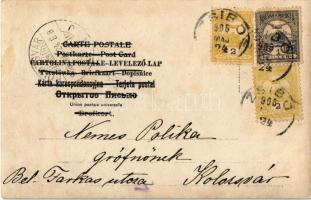 CARTE POSTALE
Postkarte — Post Card
CARTOLINA POSTALE - LEVELEZŐ-LAP
Briefkaart - Dopisnice
Karta korespondencyjna - Tarjeta postal
Открытое Письмо
Union postale universelle
Brefkort.
ZSIBÓ
905
Nemes Polika
grófnőnek
Bel. Farkas utcza Kolozsvár